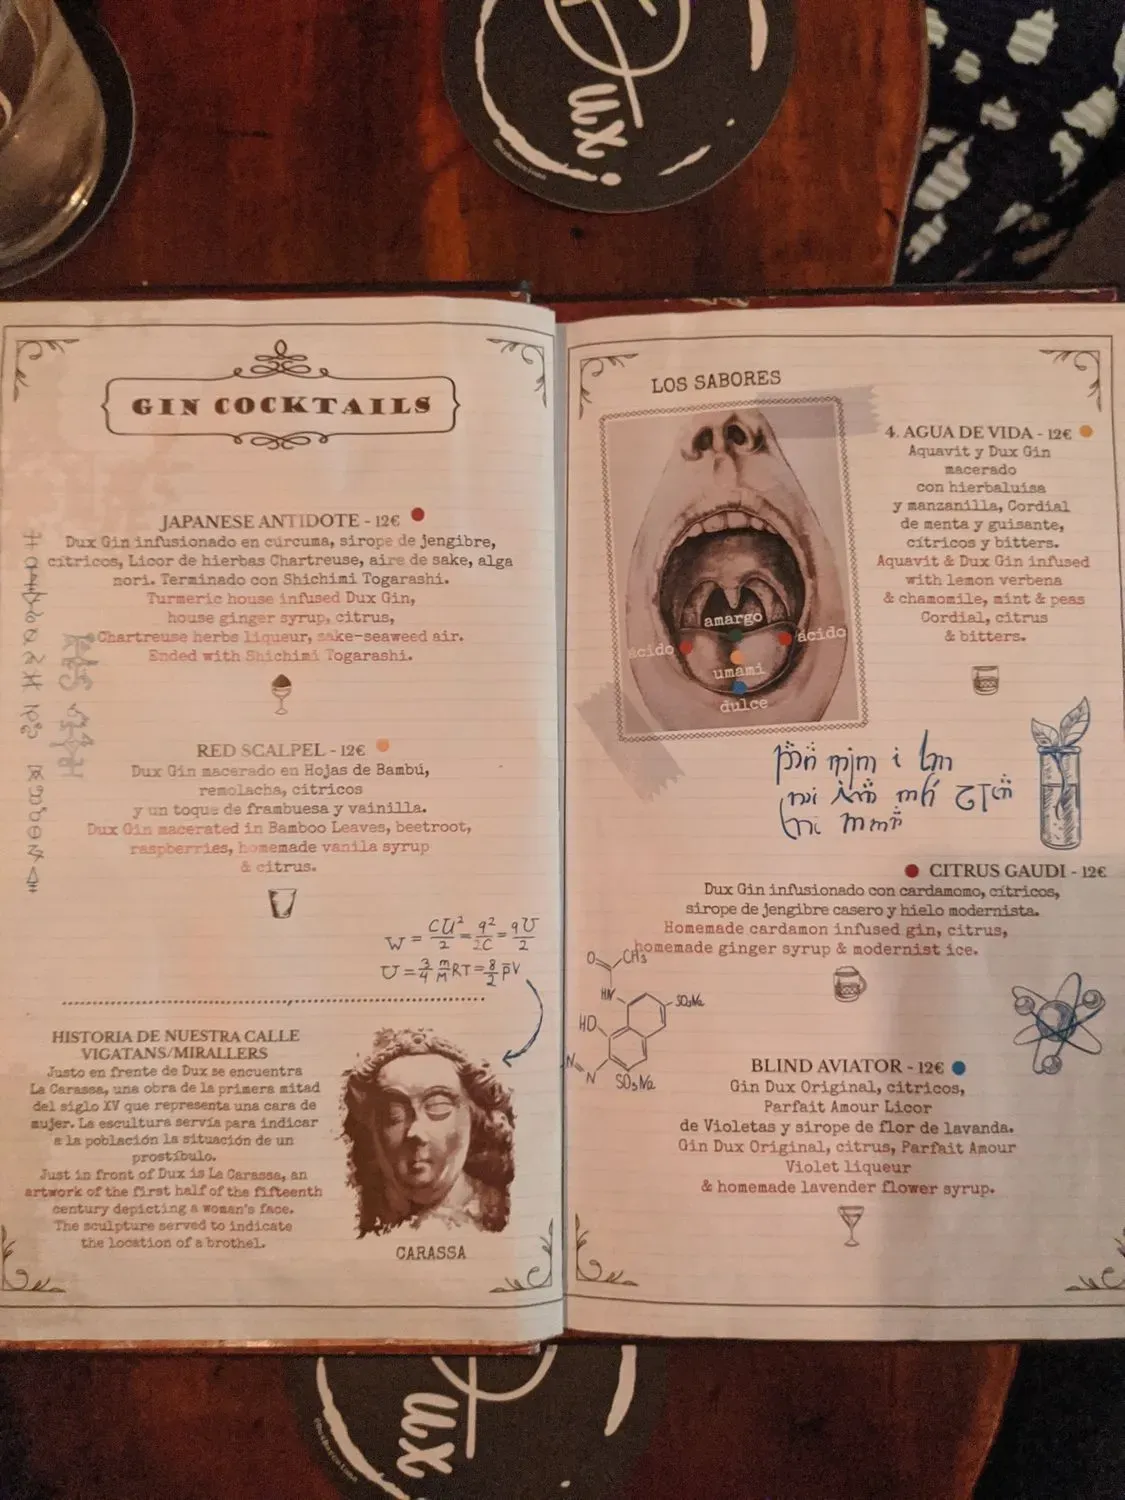 Dux
GIN COCKTAILS
JAPANESE ANTIDOTE - 12€
Dux Gin infusionado en curcuma, sirope de jengibre,
citricos, Licor de hierbas Chartreuse, aire de sake, alga
nori. Terminado con Shichimi Togarashi.
Turmeric house infused Dux Gin,
house ginger syrup, citrus,
Chartreuse herbs liqueur, sake-seaweed air.
Ended with Shichimi Togarashi.
RED SCALPEL - 12€
Dux Gin macerado en Hojas de Bambú,
remolacha, citricos
y un toque de frambuesa y vainilla.
Dux Gin macerated in Bamboo Leaves, beetroot,
raspberries, homemade vanila syrup
& citrus.
W = CU²/2 = q²/2C = qU/2
U = 3/4 m/M RT = 8/2 p̄V
HISTORIA DE NUESTRA CALLE
VIGATANS/MIRALLERS
Justo en frente de Dux se encuentra
La Carassa, una obra de la primera mitad
del siglo XV que representa una cara de
mujer. La escultura servía para indicar
a la población la situación de un
prostíbulo.
Just in front of Dux is La Carassa, an
artwork of the first half of the fifteenth
century depicting a woman's face.
The sculpture served to indicate
the location of a brothel.
CARASSA
LOS SABORES
amargo
ácido
ácido
umami
dulce
4. AGUA DE VIDA - 12€
Aquavit y Dux Gin
macerado
con hierbaluisa
y manzanilla, Cordial
de menta y guisante,
cítricos y bitters.
Aquavit & Dux Gin infused
with lemon verbena
& chamomile, mint & peas
Cordial, citrus
& bitters.
CITRUS GAUDI - 12€
Dux Gin infusionado con cardamomo, cítricos,
sirope de jengibre casero y hielo modernista.
Homemade cardamon infused gin, citrus,
homemade ginger syrup & modernist ice.
O
CH₃
HN
SO₃Na
HO
N=N
SO₃Na
BLIND AVIATOR - 12€
Gin Dux Original, citricos,
Parfait Amour Licor
de Violetas y sirope de flor de lavanda.
Gin Dux Original, citrus, Parfait Amour
Violet liqueur
& homemade lavender flower syrup.
Dux